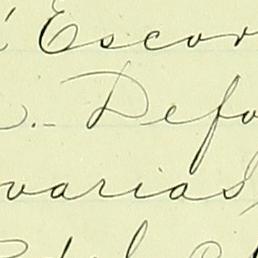 Escor
Defo
varias,